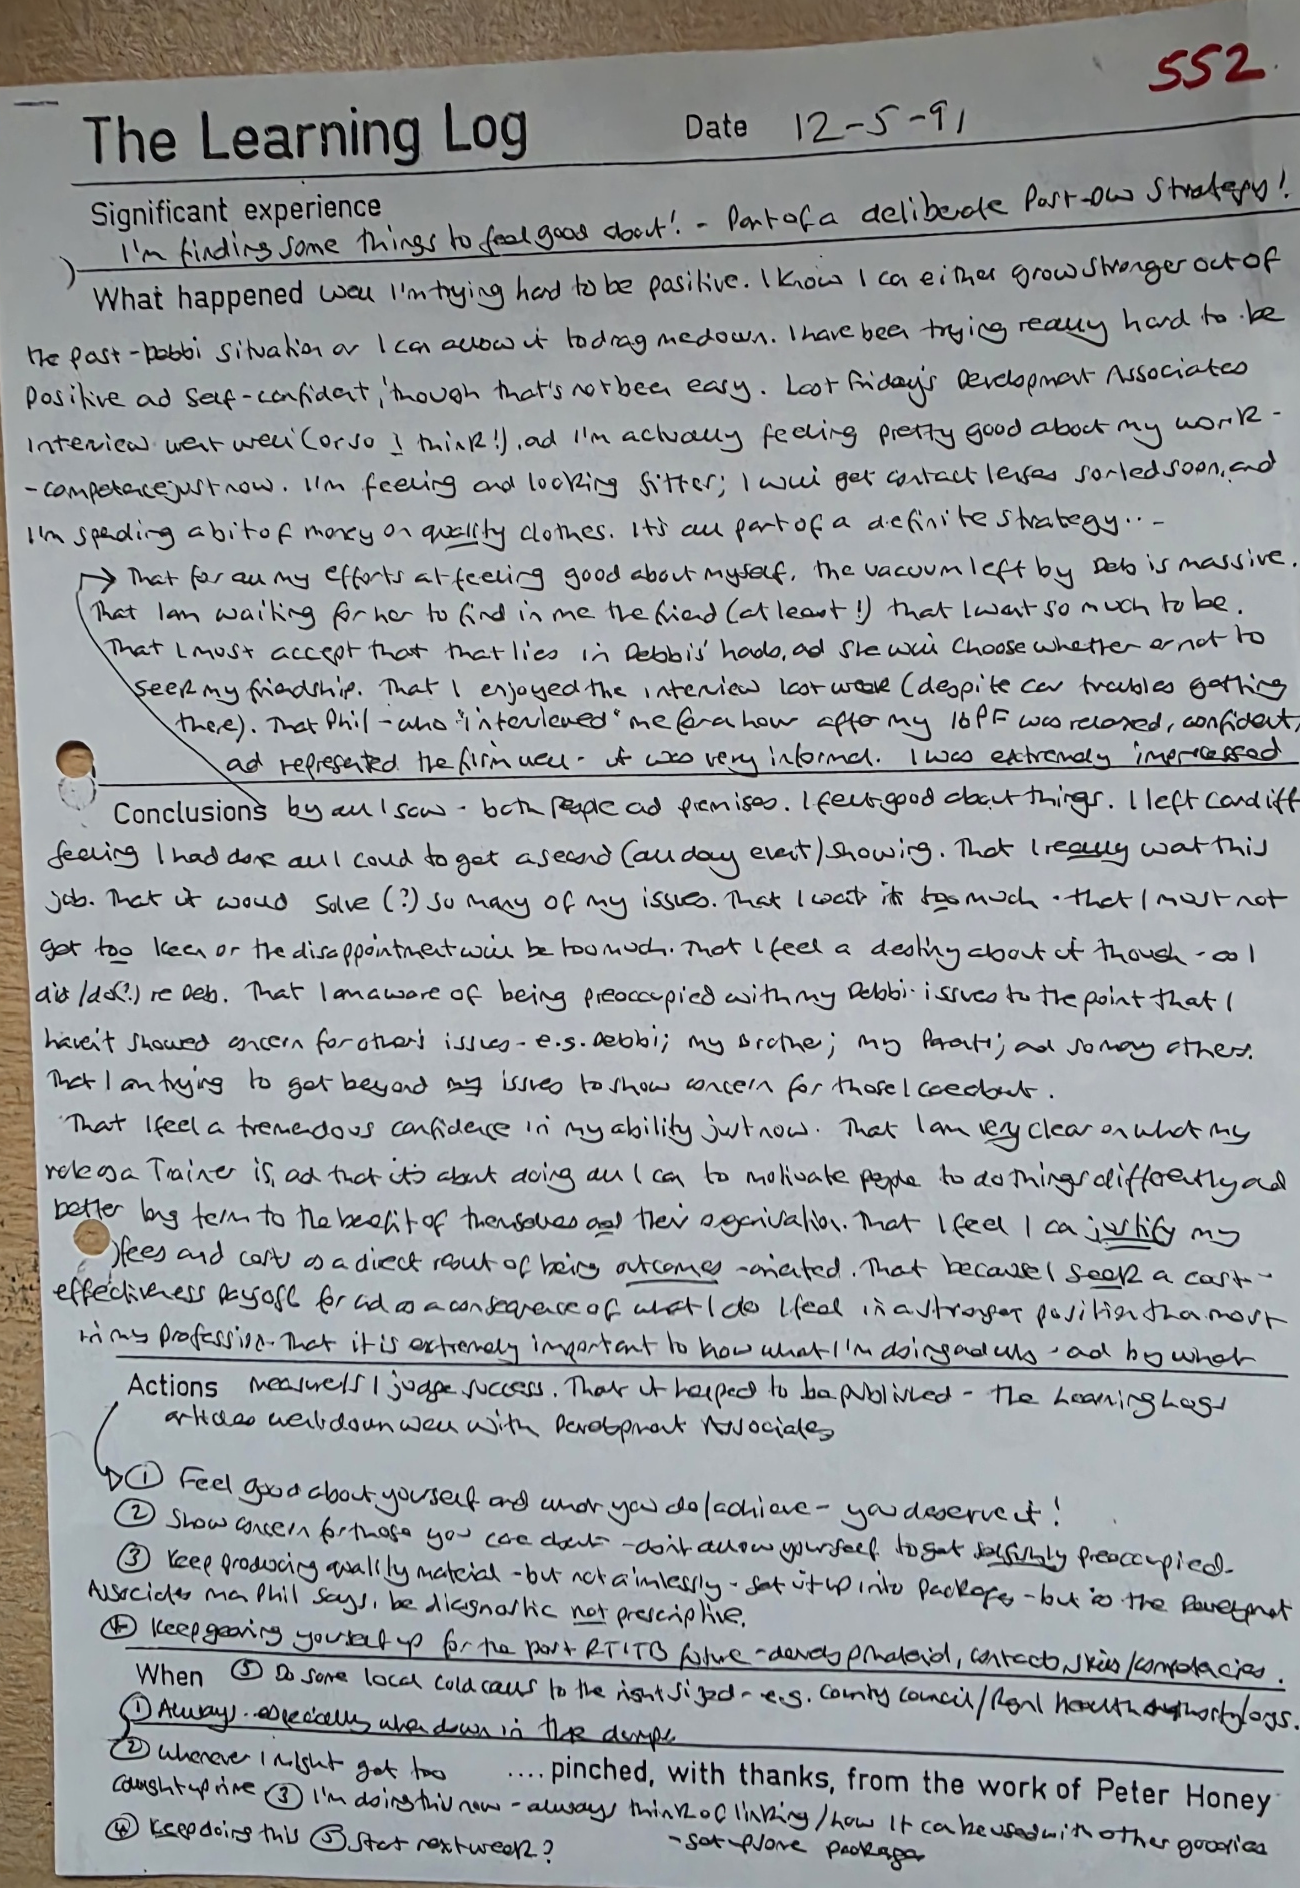 552.
The Learning Log Date 12-5-91
Significant experience
I'm finding some things to feel good about! - Part of a deliberate Post-Ow Strategy!
What happened Well I'm trying hard to be positive. I know I can either grow stronger out of
the post-Debbi situation or I can allow it to drag me down. I have been trying really hard to be
positive and self-confident, though that's not been easy. Last Friday's Development Associates
interview went well (or so I think!), and I'm actually feeling pretty good about my work-
-competence just now. I'm feeling and looking fitter; I will get contact lenses sorted soon, and
I'm spending a bit of money on quality clothes. It's all part of a definite strategy...-
→ That for all my efforts at feeling good about myself, the vacuum left by Deb is massive.
That I am waiting for her to find in me the friend (at least!) that I want so much to be.
That I must accept that that lies in Debbi's hands, and she will choose whether or not to
seek my friendship. That I enjoyed the interview last week (despite car troubles getting
there). That Phil - who "interviewed" me for an hour after my 16PF was relaxed, confident,
and represented the firm well - it was very informal. I was extremely impressed
Conclusions by all I saw - both people and premises. I felt good about things. I left Cardiff
feeling I had done all I could to get a second (all day event) showing. That I really want this
job. That it would solve (?) so many of my issues. That I want it too much - that I must not
get too keen or the disappointment will be too much. That I feel a destiny about it though - as I
did/do(?) re Deb. That I am aware of being preoccupied with my Debbi-issues to the point that I
haven't showed concern for others' issues - e.g. Debbi; my brother; my Parents; and so many others.
That I am trying to get beyond my issues to show concern for those I care about.
That I feel a tremendous confidence in my ability just now. That I am very clear on what my
role as a Trainer is, and that it's about doing all I can to motivate people to do things differently and
better long term to the benefit of themselves and their organisation. That I feel I can justify my
fees and costs as a direct result of being outcomes-oriented. That because I seek a cost-
effectiveness payoff for and as a consequence of what I do I feel in a stronger position than most
in my profession. That it is extremely important to know what I'm doing and why - and by what
Actions measures I judge success. That it helped to be published - the Learning Logs
articles went down well with Development Associates
① Feel good about yourself and what you do/achieve - you deserve it!
② Show concern for those you care about - don't allow yourself to get selfishly preoccupied.
③ Keep producing quality material - but not aimlessly - set it up into packages - but as the Development
Associates man Phil says, be diagnostic not prescriptive.
④ Keep gearing yourself up for the post RTITB future - develop material, contacts, skills/competencies.
When ⑤ Do some local cold calls to the right sized - e.g. County Council/Regnl Health Authority/orgs.
① Always - especially when down in the dumps
② Whenever I might get too
.... pinched, with thanks, from the work of Peter Honey
caught up in me ③ I'm doing this now - always think of linking/how it can be used with other goodies
- set up some packages
④ Keep doing this ⑤ Start next week?